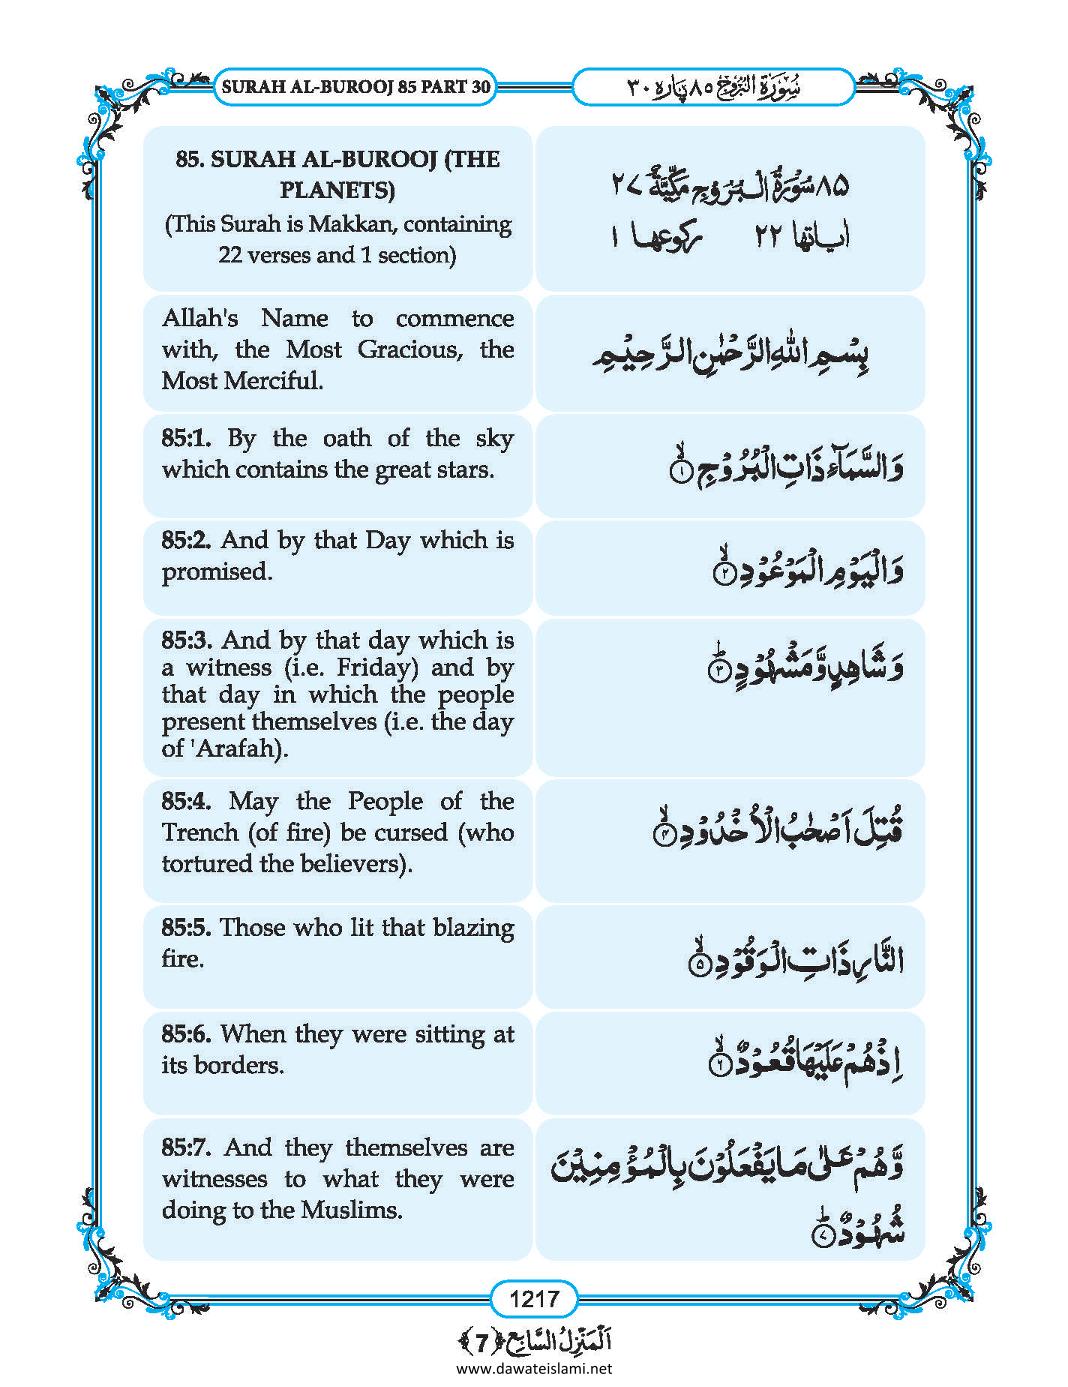 SURAH AL-BUROOJ 85 PART 30
سُوْرَةُ الْبُرُوْج ٨٥ پاره ٣٠
85. SURAH AL-BUROOJ (THE
PLANETS)
(This Surah is Makkan, containing
22 verses and 1 section)
٨٥ سُوْرَةُ الْبُرُوْجِ مَكِّيَّةٌ ٢٧
اٰیاتها ٢٢ ركوعها ١
Allah's Name to commence
with, the Most Gracious, the
Most Merciful.
بِسْمِ اللّٰهِ الرَّحْمٰنِ الرَّحِیْمِ
85:1. By the oath of the sky
which contains the great stars.
وَ السَّمَآءِ ذَاتِ الْبُرُوْجِۙ﴿۱﴾
85:2. And by that Day which is
promised.
وَ الْیَوْمِ الْمَوْعُوْدِۙ﴿۲﴾
85:3. And by that day which is
a witness (i.e. Friday) and by
that day in which the people
present themselves (i.e. the day
of 'Arafah).
وَ شَاهِدٍ وَّ مَشْهُوْدٍؕ﴿۳﴾
85:4. May the People of the
Trench (of fire) be cursed (who
tortured the believers).
قُتِلَ اَصْحٰبُ الْاُخْدُوْدِۙ﴿۴﴾
85:5. Those who lit that blazing
fire.
النَّارِ ذَاتِ الْوَقُوْدِۙ﴿۵﴾
85:6. When they were sitting at
its borders.
اِذْ هُمْ عَلَیْهَا قُعُوْدٌۙ﴿۶﴾
85:7. And they themselves are
witnesses to what they were
doing to the Muslims.
وَّ هُمْ عَلٰى مَا یَفْعَلُوْنَ بِالْمُؤْمِنِیْنَ
شُهُوْدٌؕ﴿۷﴾
1217
اَلْمَنْزِلُ السَّابِع ﴿7﴾
www.dawateislami.net